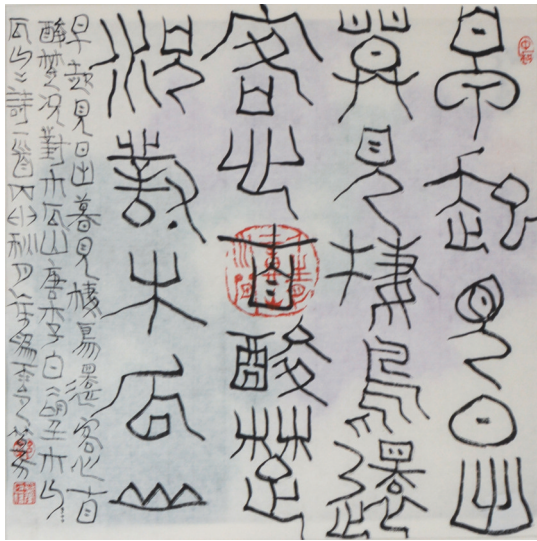 早起見日出
暮見棲鳥還
客心自酸楚
況對木瓜山
早起見日出暮見棲鳥還客心自
酸楚況對木瓜山唐李白
瓜山詩一首